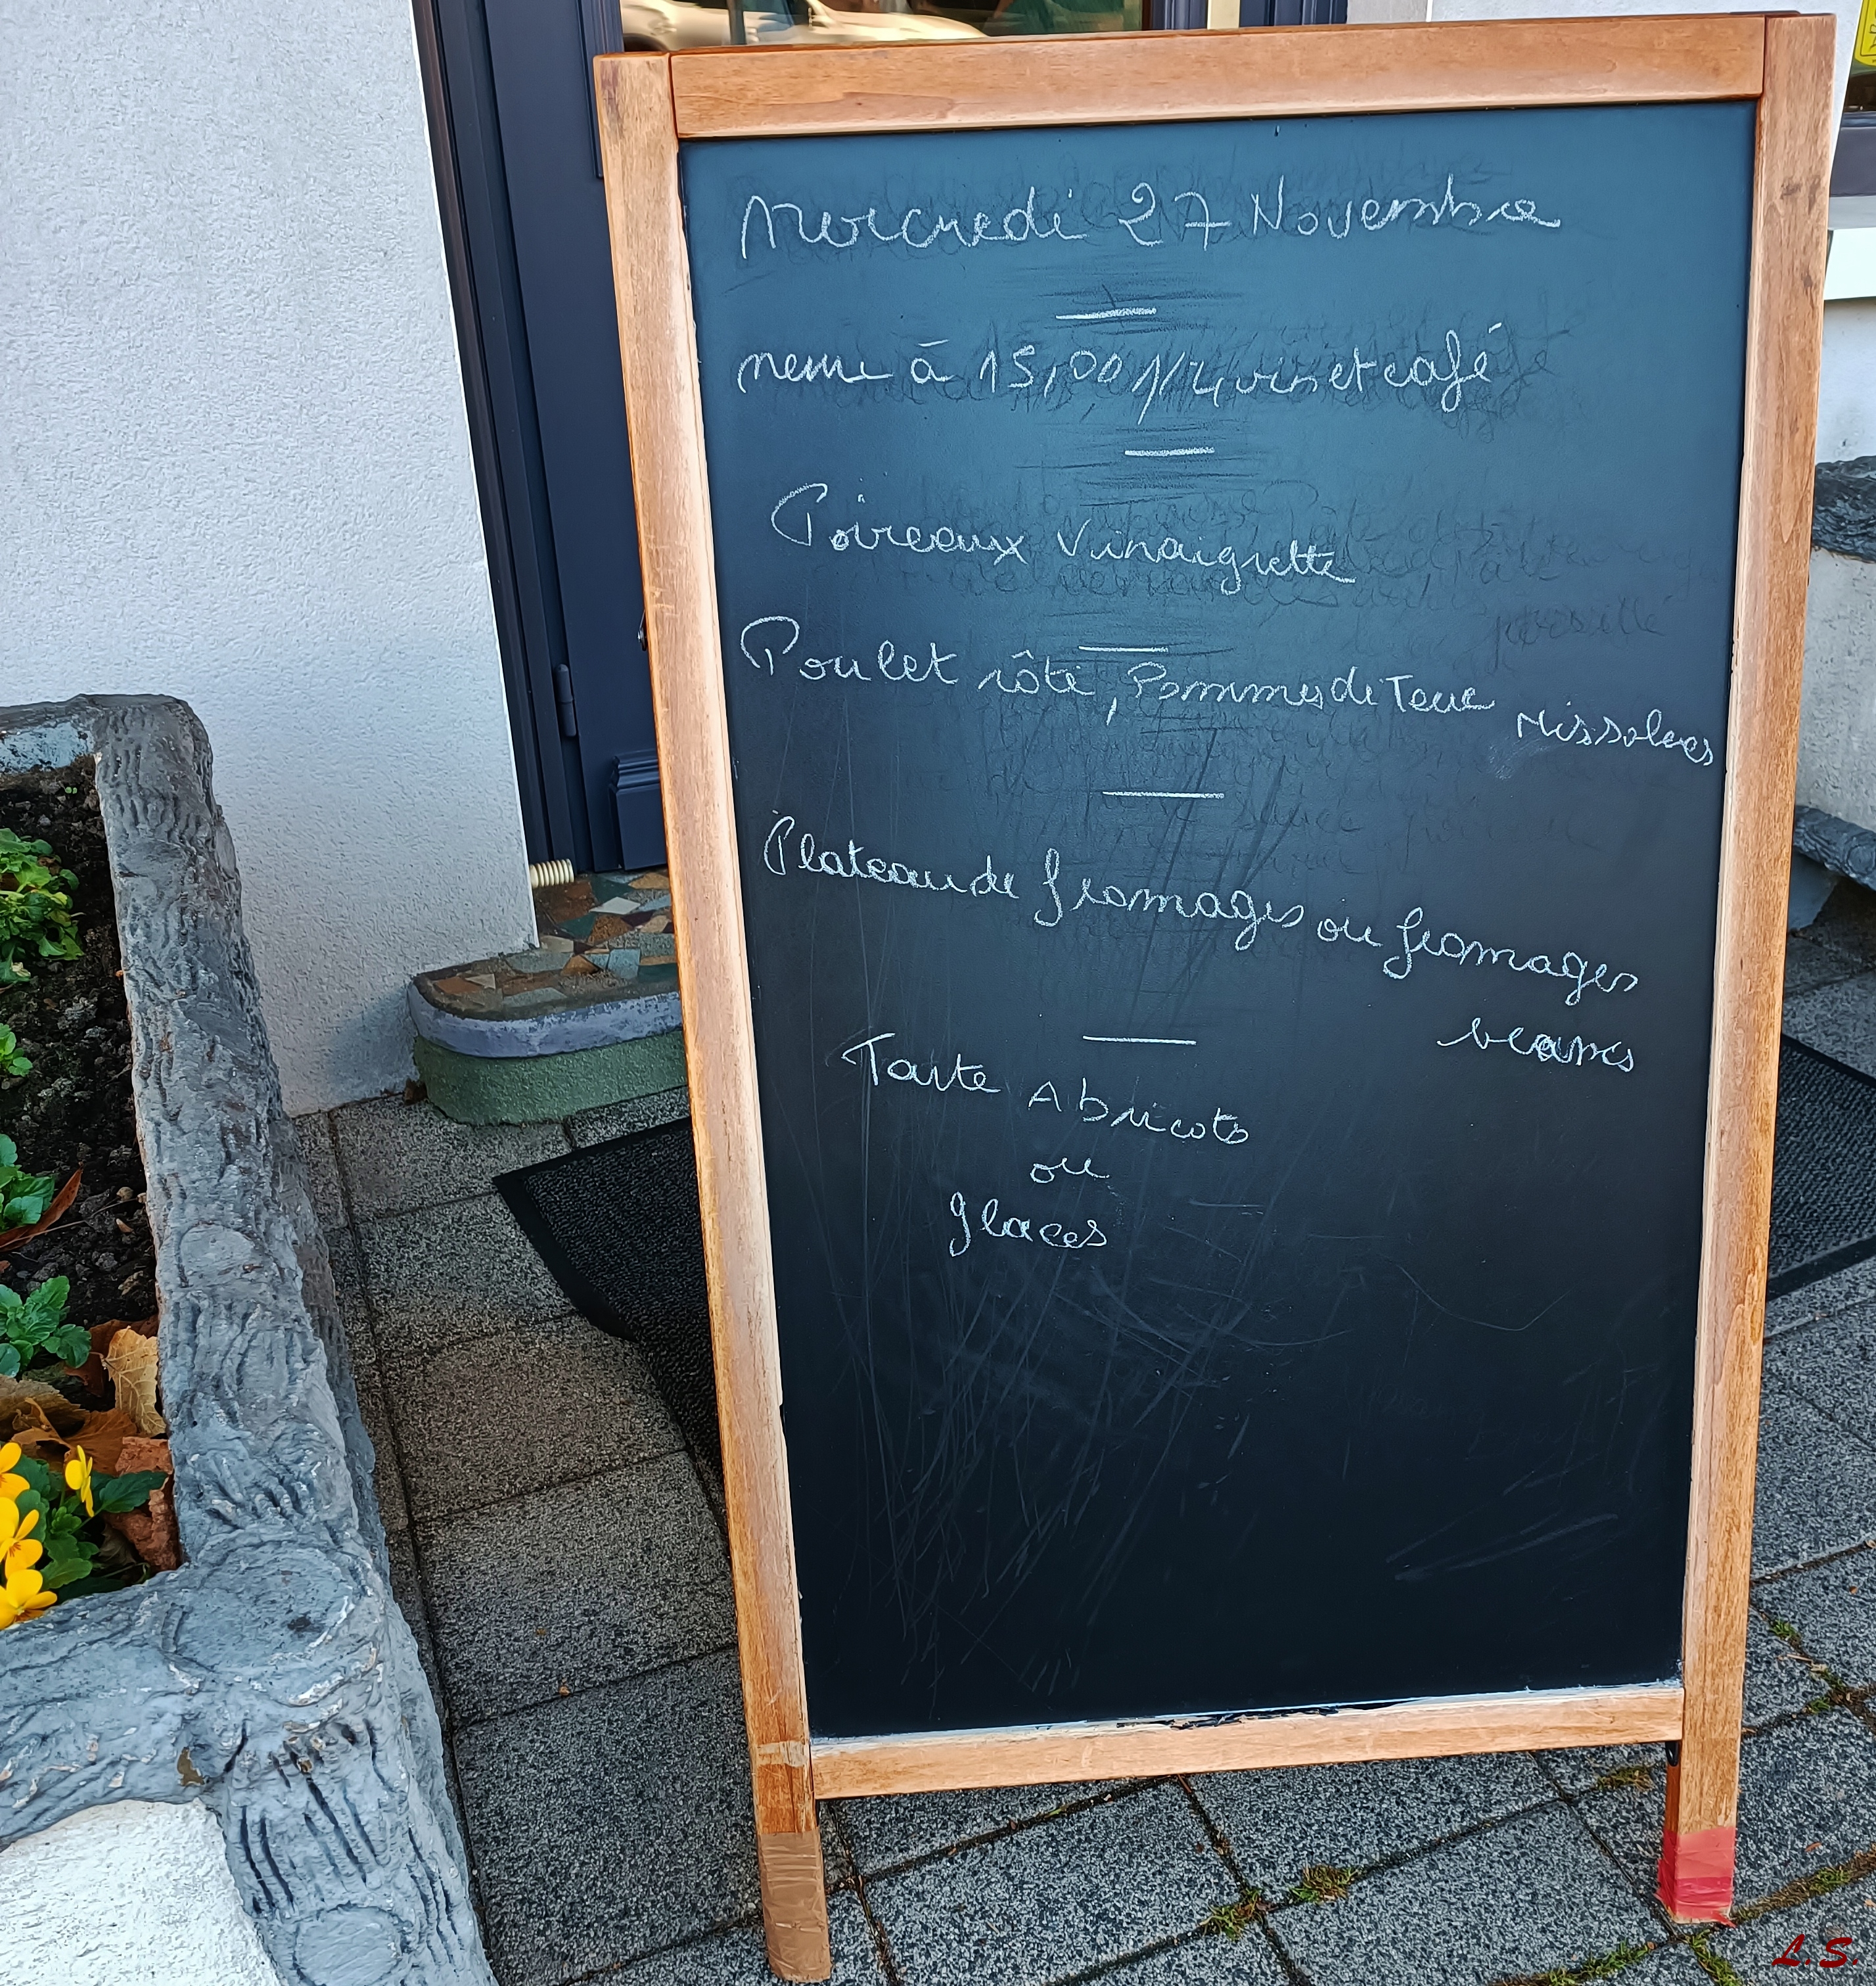 Mercredi 27 Novembre
menu à 15,00 1/4 vin et café
Poireaux Vinaigrette
Poulet rôti, Pommes de Terre rissolees
Plateau de fromages ou fromages
blancs
Tarte Abricots
ou
glaces
L.S.